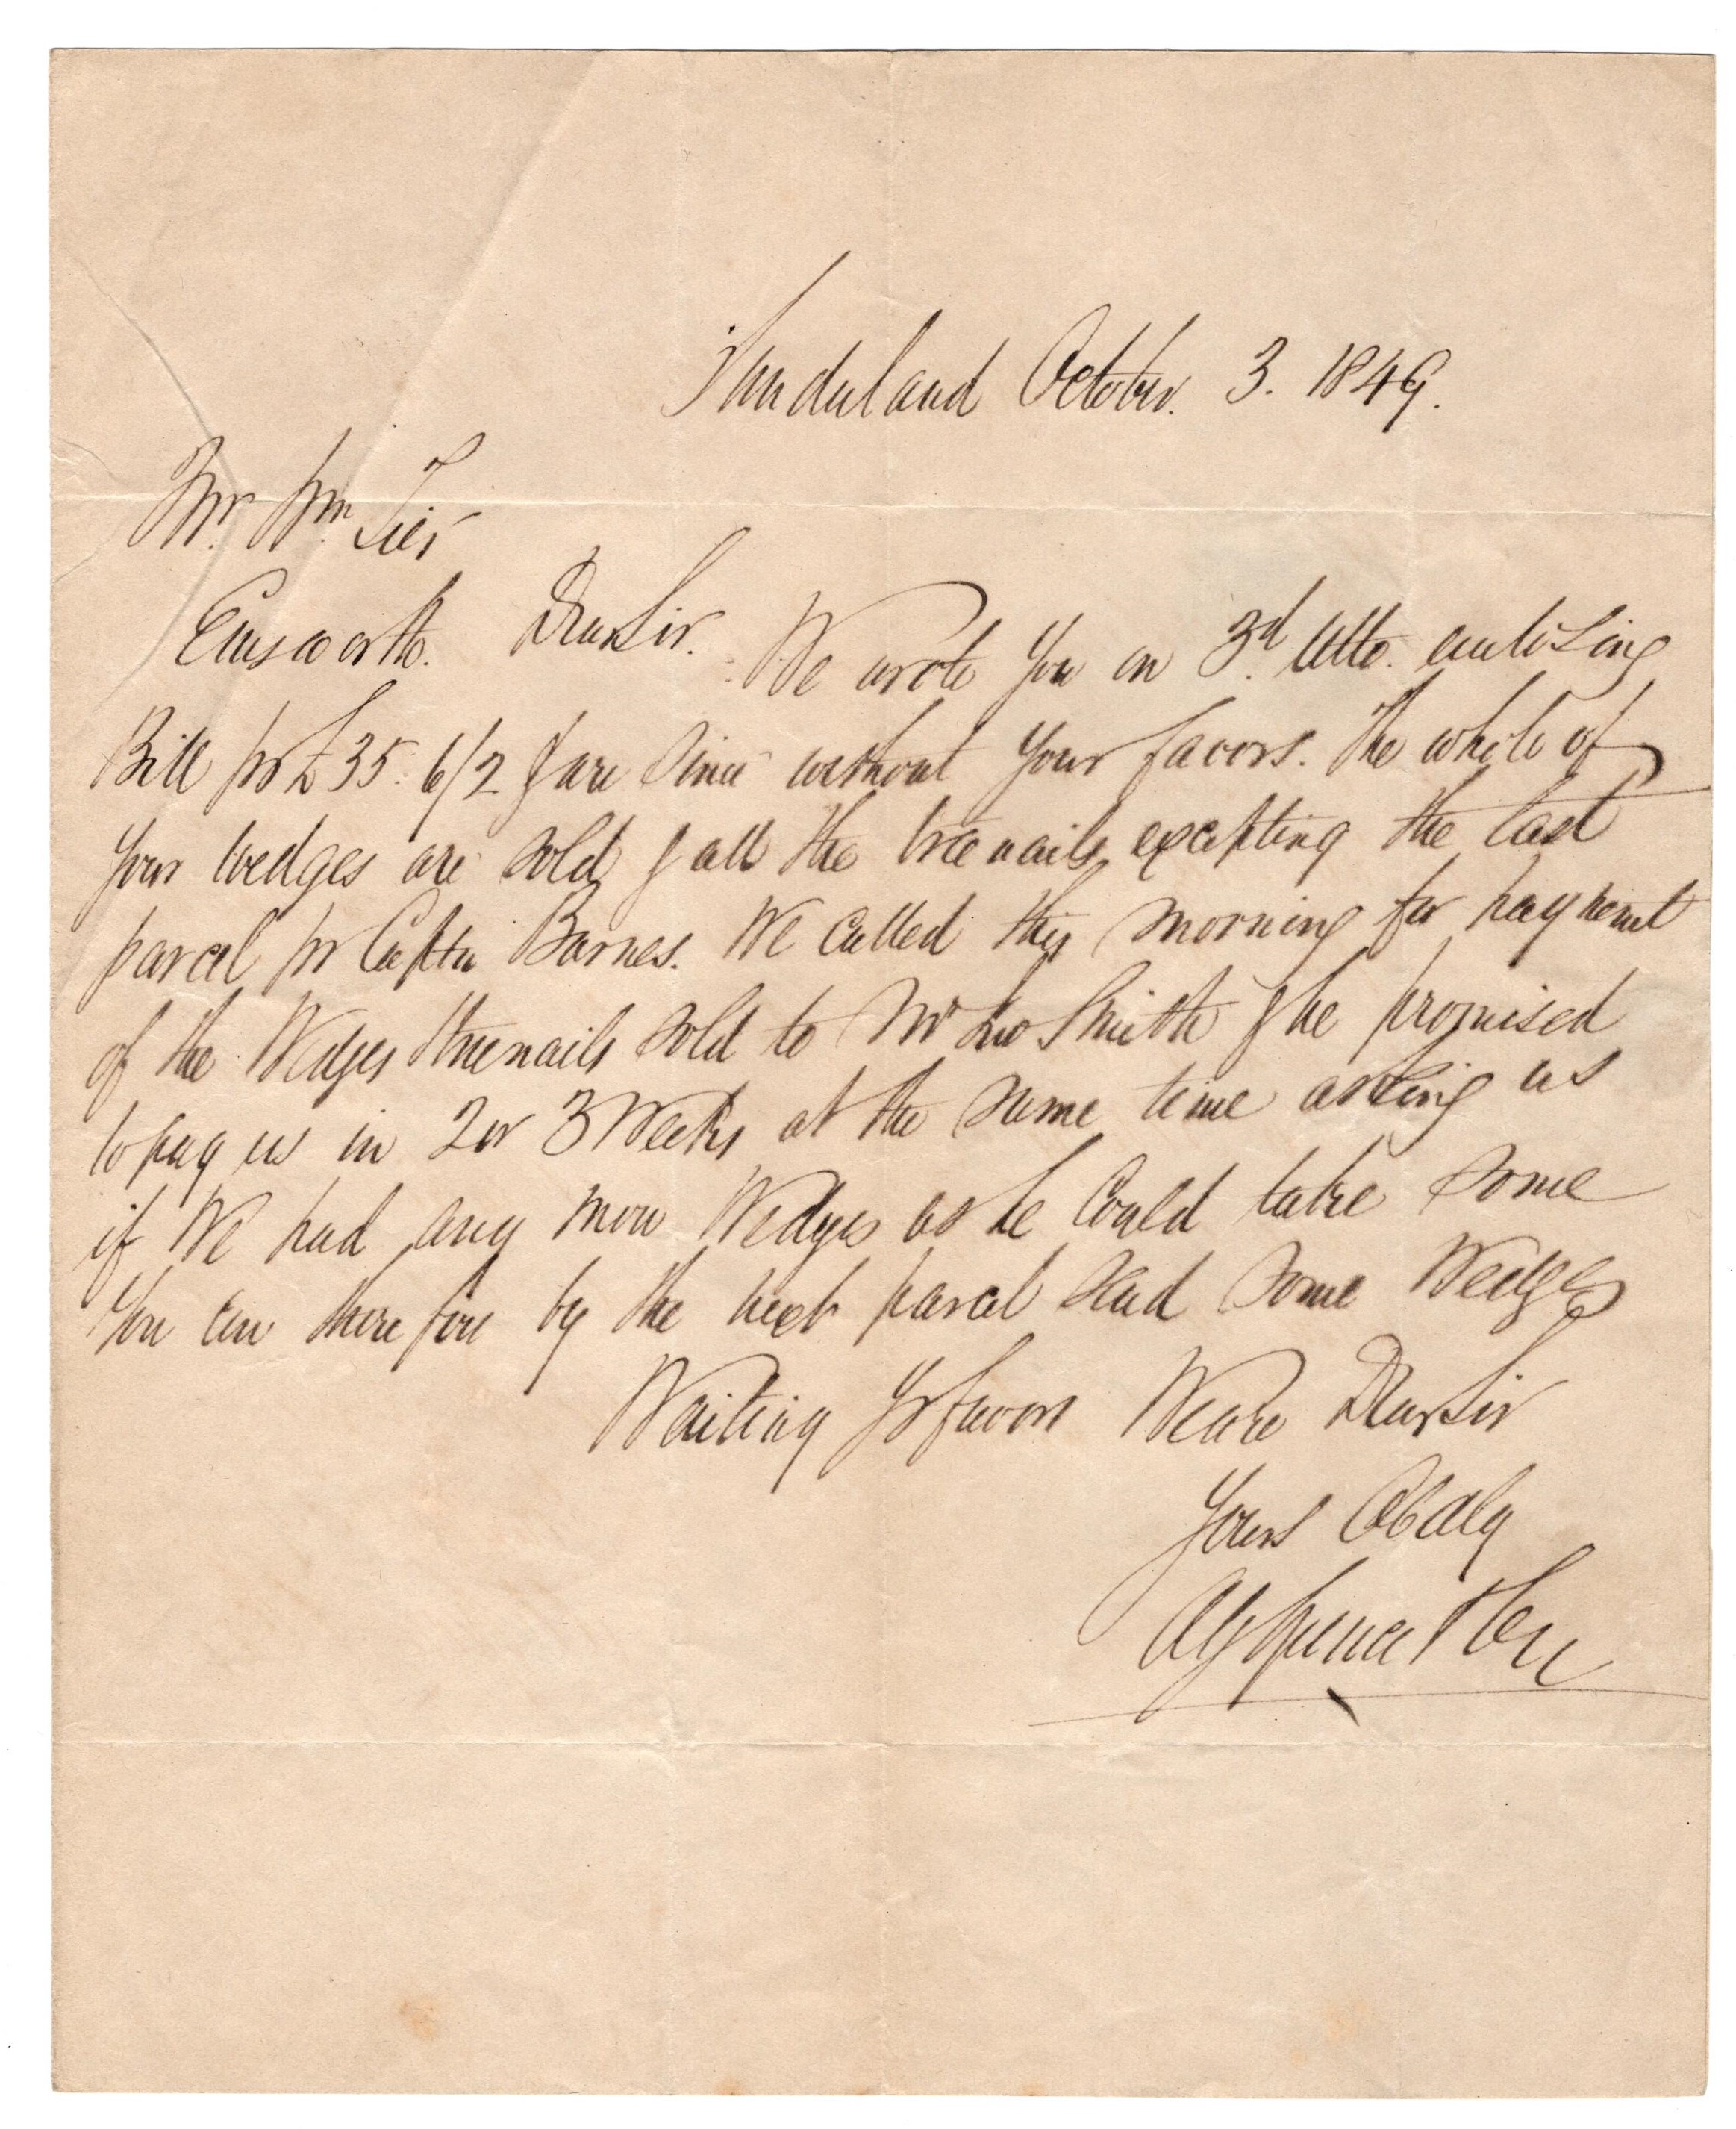 Sunderland October. 3. 1849.
Mr. Wm. Tier
Emsworth. Dear Sir. We wrote You on 3d. Ulto. enclosing
Bill pr £35. 6/2 & are since without Your favors. The whole of
Your Wedges are sold & all the treenails excepting the last
parcel pr Captn Barnes. We Called this morning for payment
of the Wedges & treenails sold to Mr Jno Smith & he promised
to pay us in 2 or 3 Weeks at the same time asking us
if We had any more Wedges as he Could take some
You can therefore by the next parcel send some Wedges
Waiting Yr favors We are Dear Sir
Yours Obdly
Spence & Co